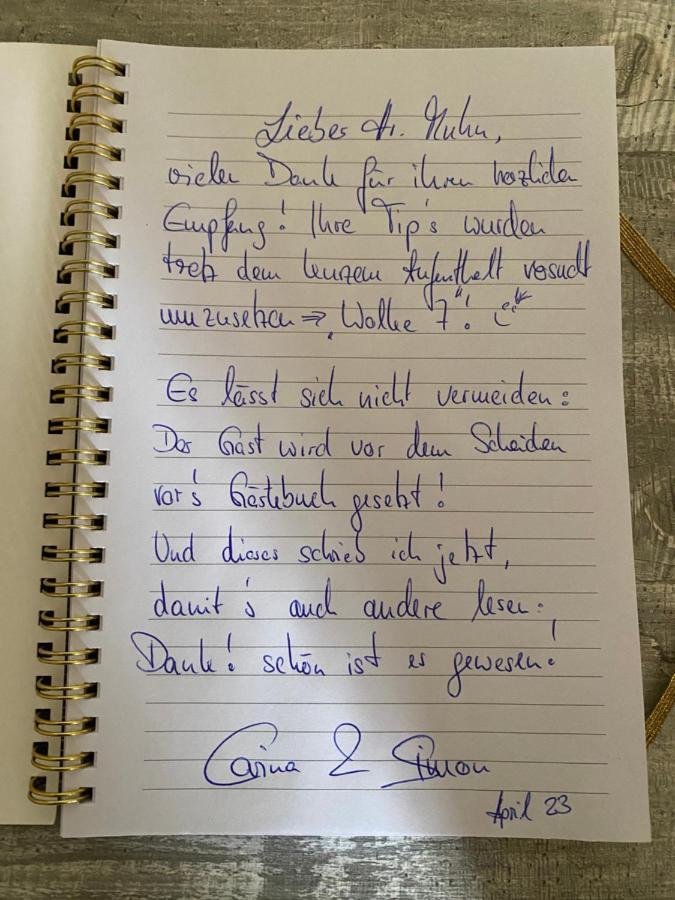 Lieber Hr. Kuhn,
vielen Dank für ihren herzlichen
Empfang! Ihre Tip's wurden
trotz dem kurzem Aufenthalt versucht
umzusetzen ⇒ „Wolke 7“!
Es lässt sich nicht vermeiden:
Der Gast wird vor dem Scheiden
vor's Gästebuch gesetzt!
Und dieses schrieb ich jetzt,
damit's auch andere lesen:
Danke! schön ist es gewesen!
Carina & Simon
April 23